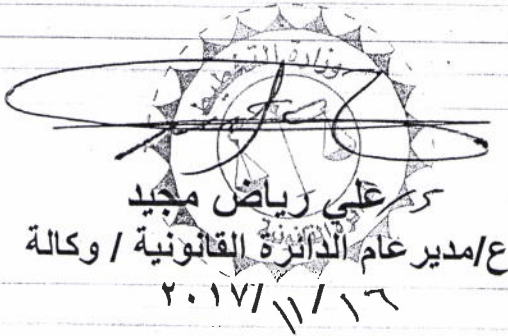 وزارة التخطيط
علي رياض مجيد
ع/مدير عام الدائرة القانونية / وكالة
٢٠١٧/١١/١٦